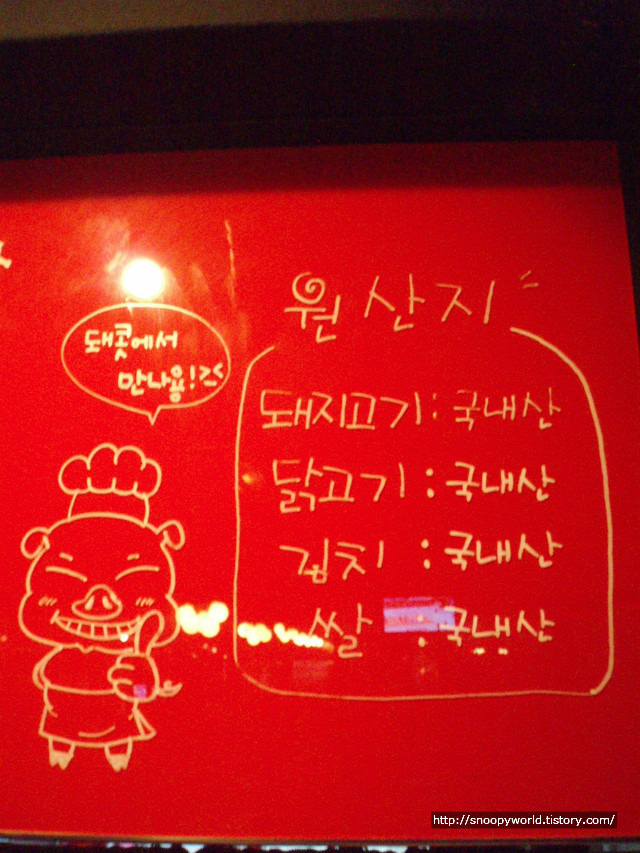 원산지
돼콧에서
만나용!><
돼지고기:국내산
닭고기:국내산
김치:국내산
쌀:국내산
http://snoopyworld.tistory.com/